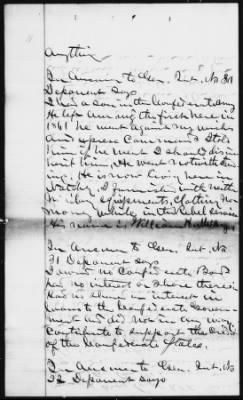 anything
In Answer to Gen. Int. No 30
Deponent says
I had a son in the Confederate Army
He left among the first here in
1861 he went against my wishes
and express Commands I told
him if he went I should disin
herit him. He went notwithstan
ding. He is now living here in
Natchez. I furnished with
Military equipments, clothing nor
money while in the Rebel service
His name is William
In Answer to Gen. Int. No
31 Deponent says
I owned no Confederate Bonds
had no interest or share therein
Had no share or interest in
Loans to the Confederate Govern-
ment and did not in any way
Contribute to support the Credit
of the Confederate States.
In Answer to Gen. Int. No
32 Deponent says